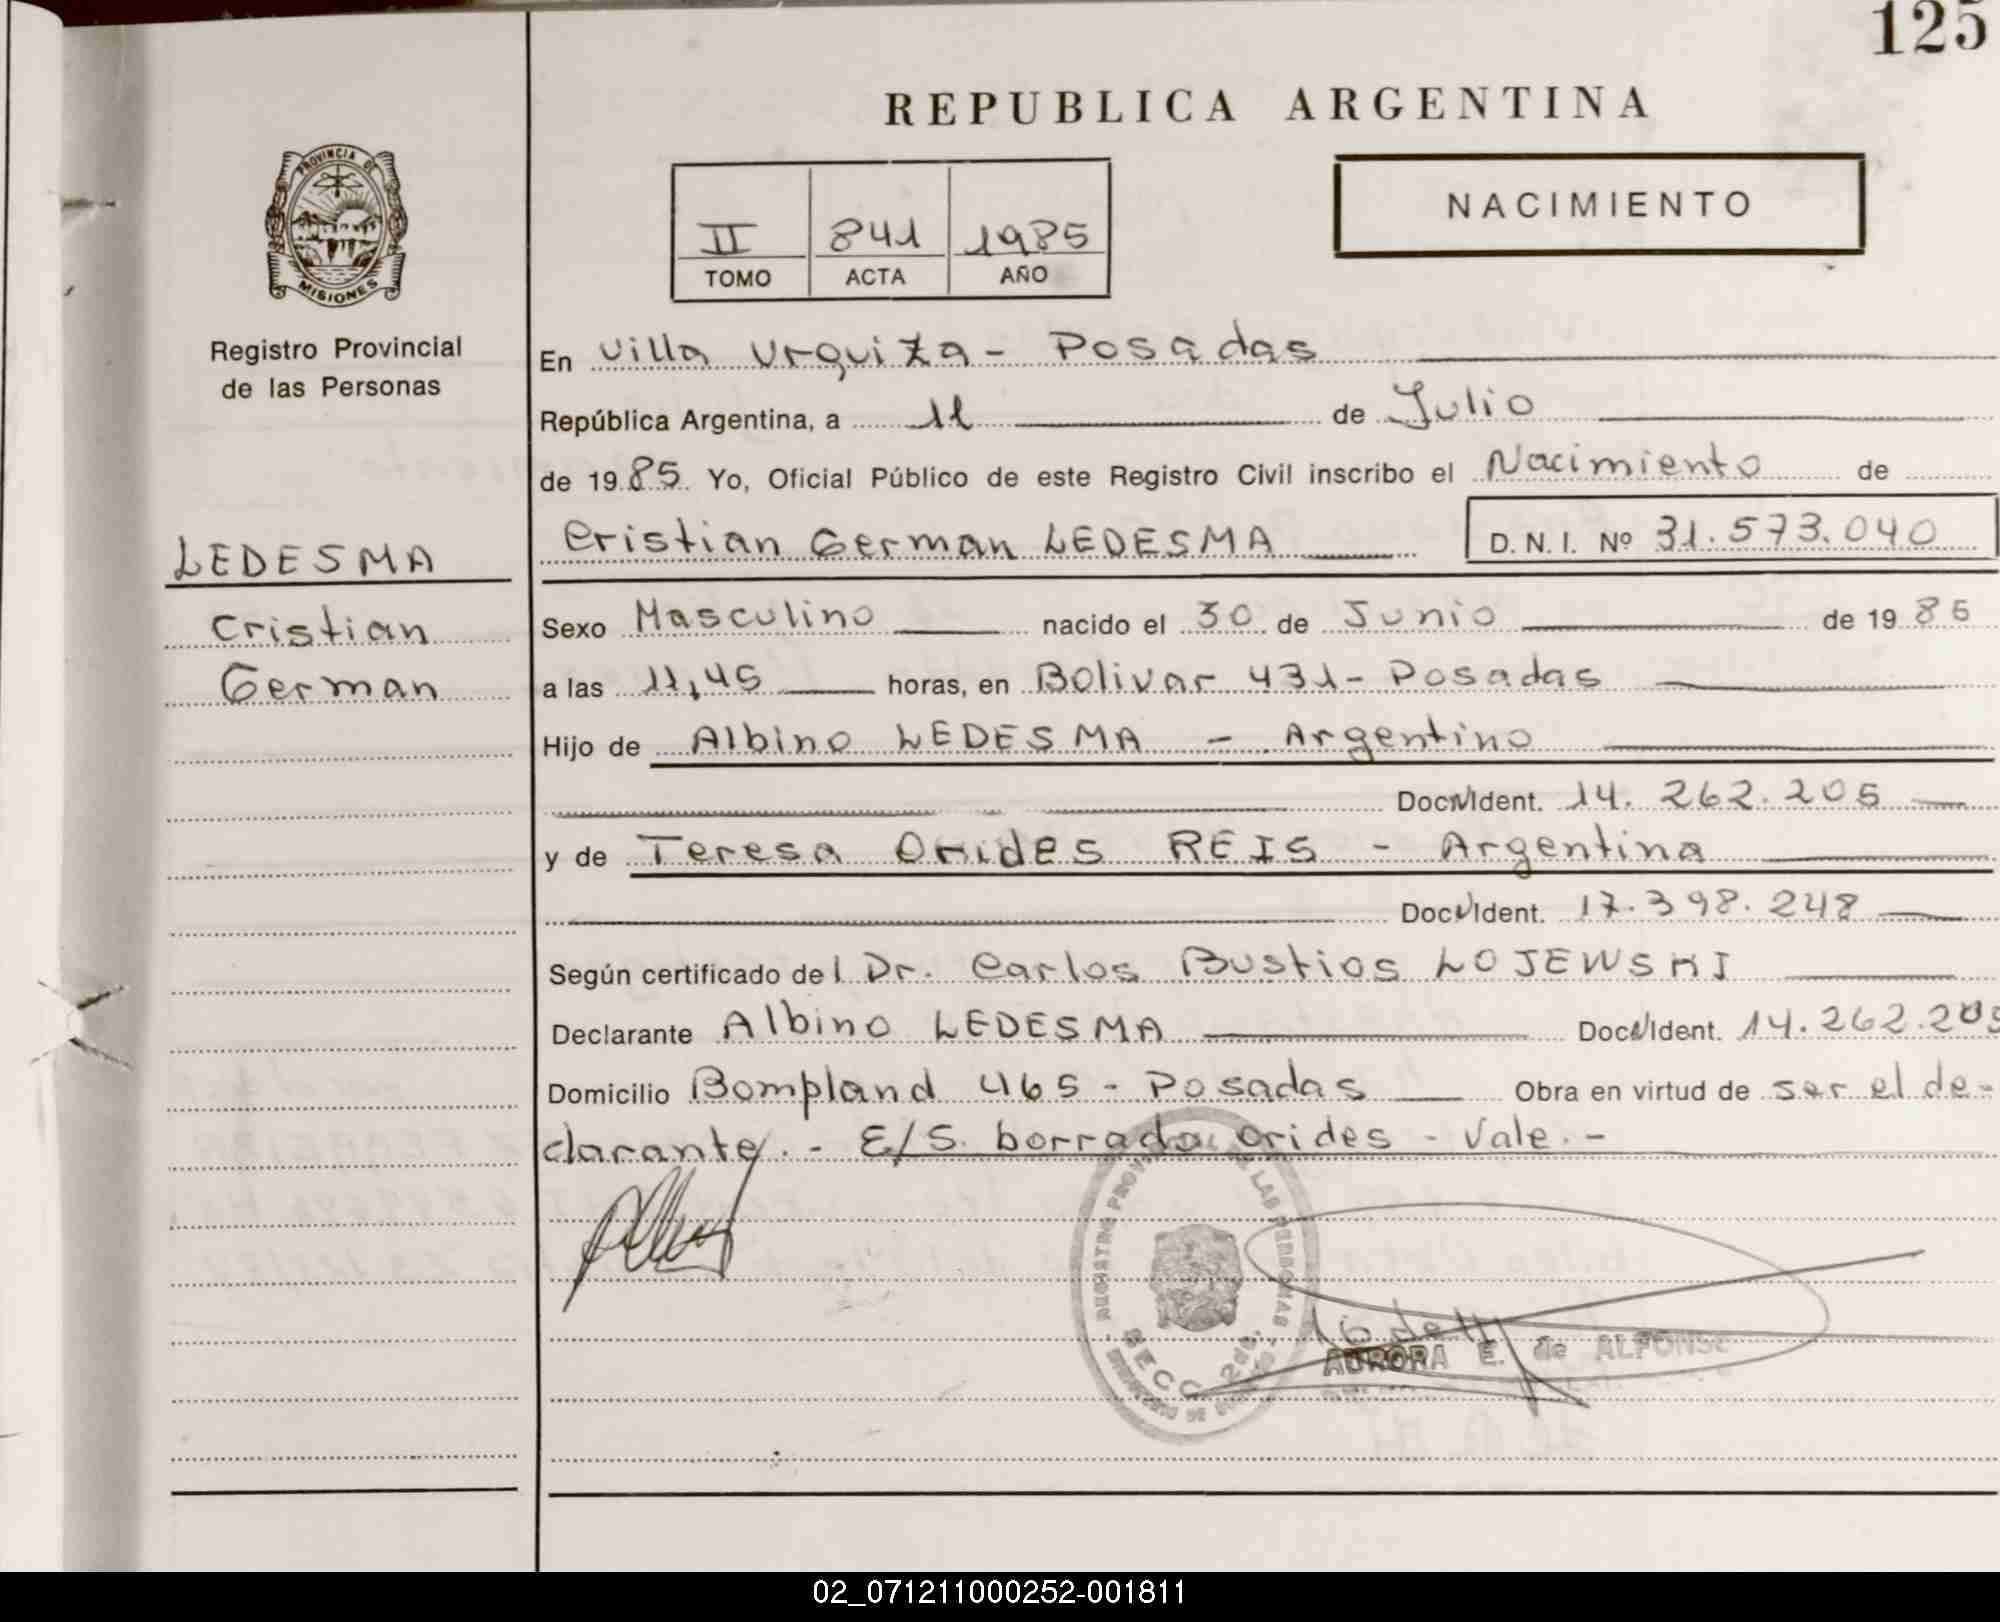 125
REPUBLICA ARGENTINA
PROVINCIA DE
MISIONES
Registro Provincial
de las Personas
II 841 1985
TOMO ACTA AÑO
NACIMIENTO
En Villa Urquiza - Posadas
República Argentina, a 11 de Julio
de 1985. Yo, Oficial Público de este Registro Civil inscribo el Nacimiento de
Cristian German LEDESMA D. N. I. Nº 31.573.040
LEDESMA
Cristian
German
Sexo Masculino nacido el 30 de Junio de 1985
a las 11,45 horas, en Bolivar 431 - Posadas
Hijo de Albino LEDESMA - Argentino
Doc. Ident. 14.262.205
y de Teresa Orides REIS - Argentina
Doc. Ident. 17.398.248
Según certificado del Dr. Carlos Bustios LOJEWSKI
Declarante Albino LEDESMA Doc. Ident. 14.262.205
Domicilio Bompland 465 - Posadas Obra en virtud de ser el de-
clarante. - E/S. borrado orides - Vale. -
REGISTRO PROVINCIAL DE LAS PERSONAS
SECC. 2da.
AURORA E. de ALFONSO
02_071211000252-001811